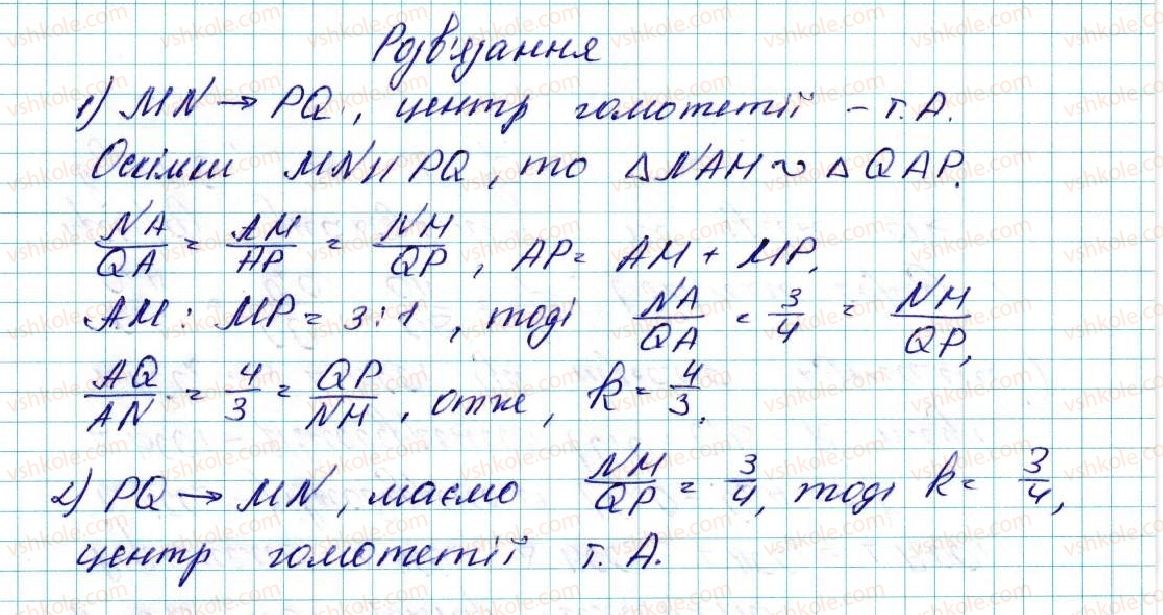 Розв'язання
1) MN → PQ, центр гомотетії – т. A.
Оскільки MN || PQ, то Δ NAM ~ Δ QAP.
NA/QA = AM/AP = NM/QP, AP = AM + MP.
AM : MP = 3 : 1, тоді NA/QA = 3/4 = NM/QP,
AQ/AN = 4/3 = QP/NM, отже, k = 4/3.
2) PQ → MN, маємо NM/QP = 3/4, тоді k = 3/4,
центр гомотетії т. A.